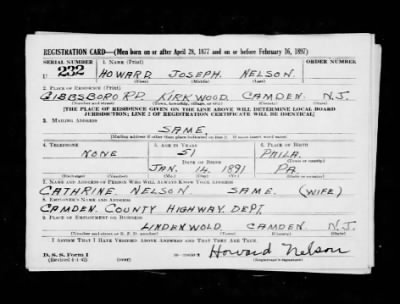 REGISTRATION CARD—(Men born on or after April 28, 1877 and on or before February 16, 1897)
SERIAL NUMBER 1. NAME (Print)
U 232 HOWARD JOSEPH NELSON
(First) (Middle) (Last)
2. PLACE OF RESIDENCE (Print)
GIBBSBORO RD. KIRKWOOD. CAMDEN. N.J.
(Number and street) (Town, township, village, or city) (County) (State)
[THE PLACE OF RESIDENCE GIVEN ON THE LINE ABOVE WILL DETERMINE LOCAL BOARD
JURISDICTION; LINE 2 OF REGISTRATION CERTIFICATE WILL BE IDENTICAL]
3. MAILING ADDRESS
SAME.
[Mailing address if other than place indicated on line 2. If same insert word same]
4. TELEPHONE 5. AGE IN YEARS 6. PLACE OF BIRTH
NONE 51 PHILA.
DATE OF BIRTH (Town or county)
JAN. 14. 1891 PA.
(Mo.) (Day) (Yr.) (State or country)
7. NAME AND ADDRESS OF PERSON WHO WILL ALWAYS KNOW YOUR ADDRESS
CATHRINE. NELSON SAME. (WIFE)
8. EMPLOYER'S NAME AND ADDRESS
CAMDEN. COUNTY HIGHWAY. DEPT.
9. PLACE OF EMPLOYMENT OR BUSINESS
LINDENWOLD. CAMDEN. N.J.
(Number and street or R. F. D. number) (Town) (County) (State)
I AFFIRM THAT I HAVE VERIFIED ABOVE ANSWERS AND THAT THEY ARE TRUE.
D. S. S. Form 1 Howard Nelson
(Revised 4-1-42) (Registrant's signature)